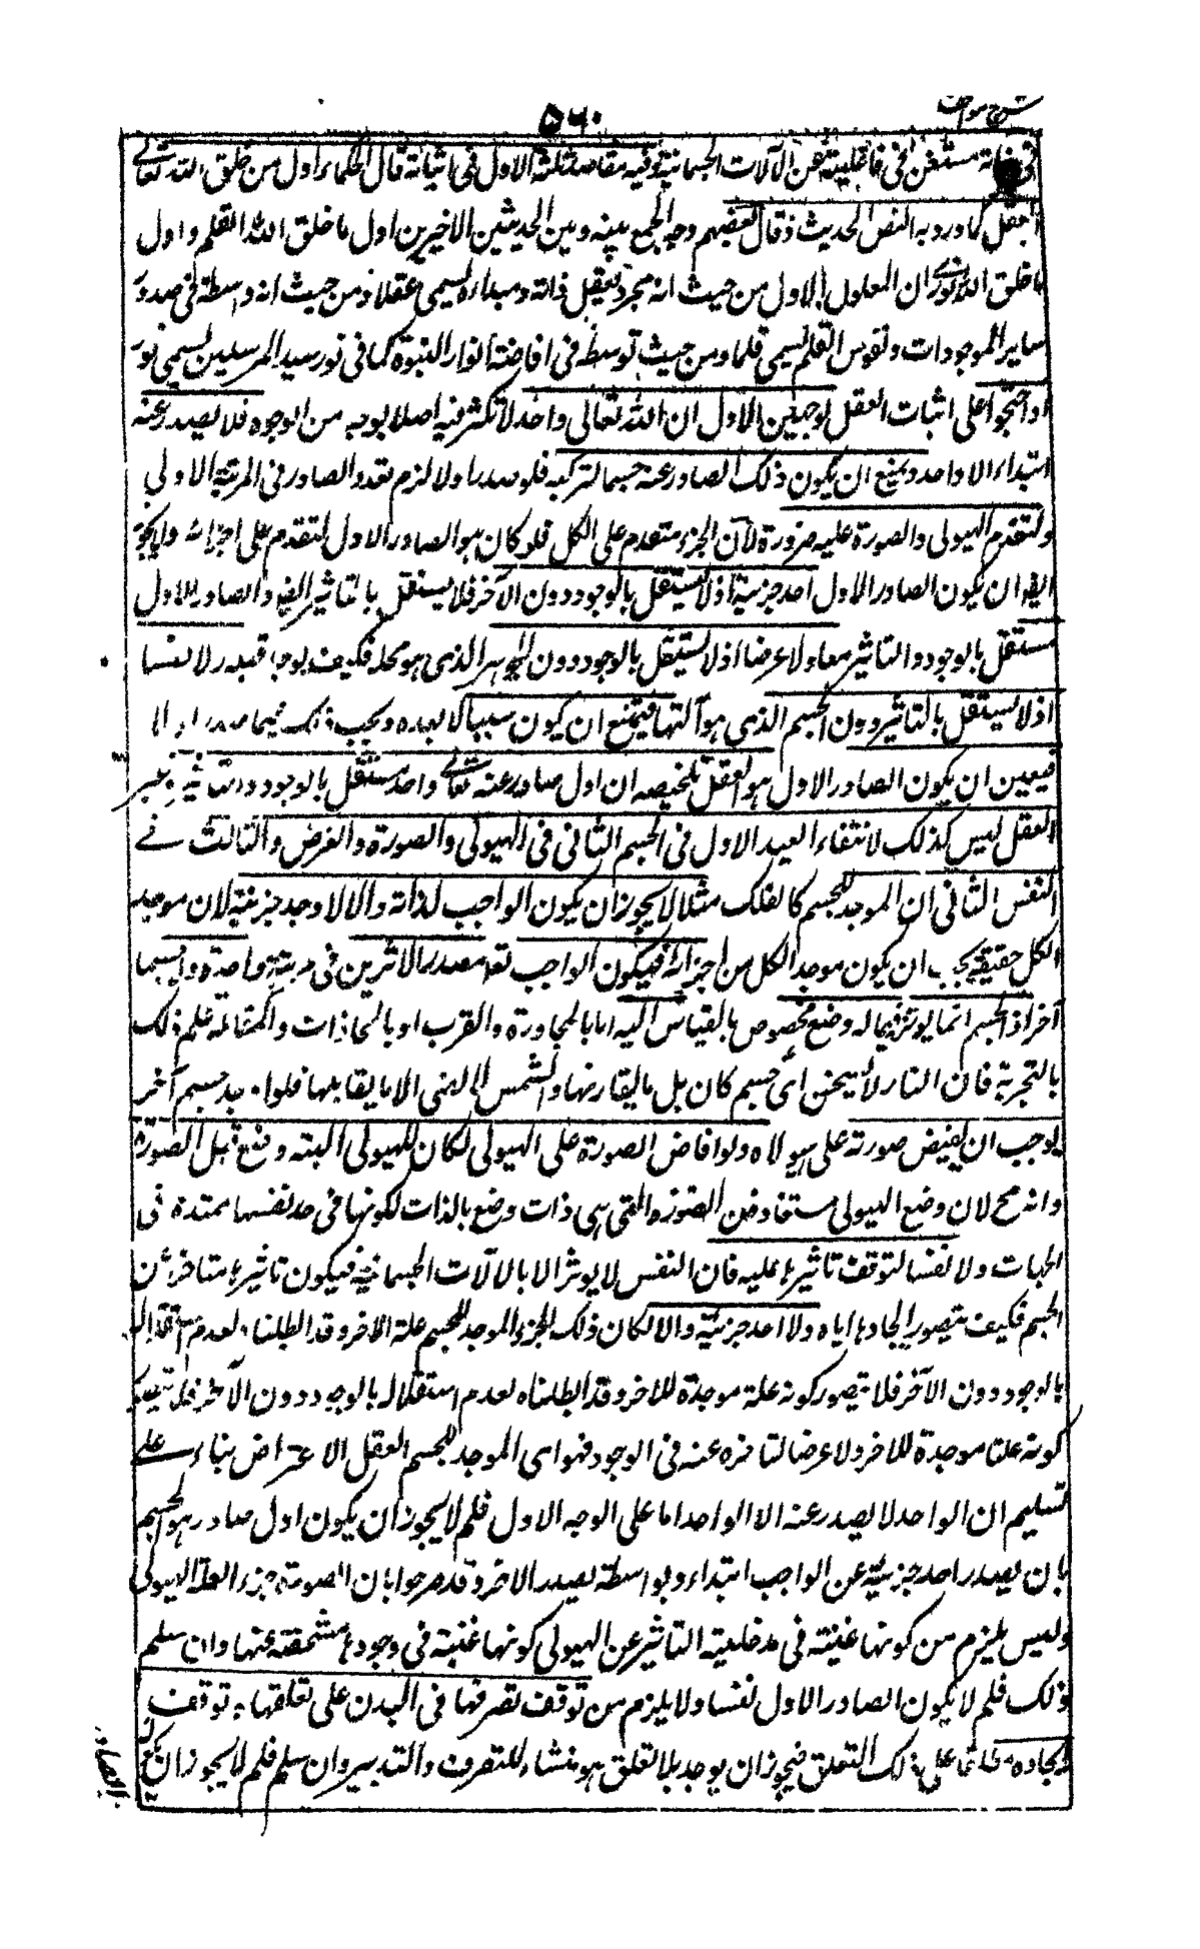 شرح مواقف
۵۶۰
فى ذاته مستغن فى فاعليته عن الآلات الجسمانية وفيه مقاصد ثلثة الاول فى اثباته قال الحكماء اول من خلق الله تعالى
العقل كما ورد به النص الحديث ذ قال بعضهم وجه الجمع بينه وبين الحديثين الاخيرين اول ما خلق الله القلم و اول
ما خلق الله نورى ان المعلول الاول من حيث انه مجرد يعقل ذاته ومبداءه يسمى عقلا ومن حيث انه واسطة فى صدور
ساير الموجودات ونقوس القلم يسمى قلما ومن حيث توسطه فى افاضة انوار النبوة كما فى نور سيد المرسلين يسمى نور
ا واحتجوا على اثبات العقل لوجهين الاول ان الله تعالى واحد لا تكثر فيه اصلا بوجه من الوجوه فلا يصدر عنه
ابتداء الا واحد ويمنع ان يكون ذلك الصادر عنه جسما لتركبه فلو صدر اولا لزم تعدد الصادر فى المرتبة الاولى
ولتقدم الهيولى والصورة عليه ضرورة لان الجزء متقدم على الكل فلو كان هو الصادر الاول لتقدم على اجزائه ولا يجوز
ايضا ان يكون الصادر الاول احد جزئية اذ لا يستقل بالوجود دون الآخر فلا يستقل بالتاثير ايضا والصادر الاول
مستقل بالوجود والتاثير معا ولا عرضا اذ لا يستقل بالوجود دون الجوهر الذى هو محله فكيف يوجد قبله ولا نفسا
اذ لا يستقل بالتاثير دون الجسم الذى هو آلتها فيمتنع ان يكون سببا لما بعده ويجب ذلك فيما صدر اولا
فيعين ان يكون الصادر الاول هو العقل تلخيصه ان اول صادر عنه تعالى واحد مستقل بالوجود والتاثير وغير
العقل ليس كذلك لانتفاء القيد الاول فى الجسم الثانى فى الهيولى والصورة والعرض والثالث فے
النفس الثانى ان الموجد للجسم كالفلك مثلا لا يجوز ان يكون الواجب لذاته والا لاوجد جزئية لان موجد
الكل حقيقة يجب ان يكون موجد الكل من اجزائه فيكون الواجب تعه مصدر الاثرين فى مرتبة واحدة ولا جسما
آخر اذ الجسم انما يوثر فيما له وضع مخصوص بالقياس اليه اما بالمجاورة والقرب او بالمحاذات والمقابلة علم ذلك
بالتجربة فان النار لا تسخن اى جسم كان بل ما يقارنها والشمس لا تضئ الا ما يقابلها فلو اوجد جسم آخر
يوجب ان يفيض صورته على هيولاه ولو افاض الصورة على الهيولى لكان للهيولى البته وضع قبل الصورة
وانه مح لان وضع الهيولى مستفاد من الصورة التى هى ذات وضع بالذات لكونها فى حد نفسها ممتدة فى
الجهات ولا نفسا لتوقف تاثيرها عليه فان النفس لا يوثر الا بالآلات الجسمانية فيكون تاثيرها متاخرا عن
الجسم فكيف يتصور ايجادها اياه ولا احد جزئية والا لكان ذلك الجزء الموجد للجسم علة الاخر وقد ابطلناه لعدم استقلاله
بالوجود دون الآخر فلا يتصور كونه علة موجدة للاخر وقد ابطلناه لعدم استقلاله بالوجود دون الآخر فلا يتصور
كونه علتا موجدة للاخر ولا عرضا لتاخره عنه فى الوجود فهو اى الموجد للجسم العقل الاعتراض بناء علے
تسليم ان الواحد لا يصدر عنه الا الواحد اما على الوجه الاول فلم لا يجوز ان يكون اول صادر هو الجسم
بان يصدر احد جزئية عن الواجب ابتداء وبواسطة يصدر الاخر وقد صرحوا بان الصورة جزء العلة الهيولى
وليس يلزم من كونها غنية فى مدخلية التاثير عن الهيولى كونها غنية فى وجودها مشخصة عنها وان سلم
ذلك فلم لا يكون الصادر الاول نفسا ولا يلزم من توقف تصرفها فى البدن على تعلقها به توقف
ايجاده مطلقا على ذلك التعلق فيجوز ان يوجد بلا تعلق هو منشاء للتصرف والتدبير وان سلم فلم لا يجوز ان يكون
الصادر